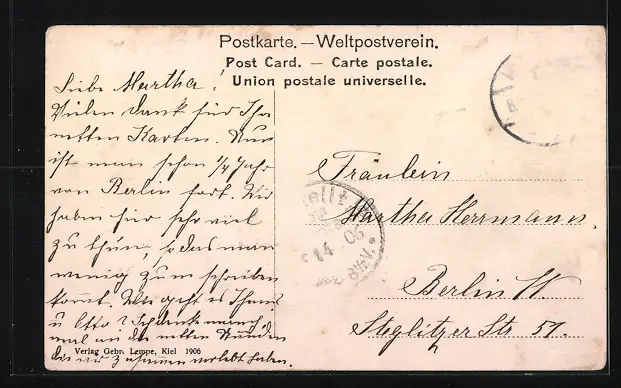 Postkarte. — Weltpostverein.
Post Card. — Carte postale.
Union postale universelle.
Liebe Martha!
Vielen Dank für Ihre
netten Karten. Nun
ist man schon 1/4 Jahr
von Berlin fort. Wir
haben hier sehr viel
zu thun, so das man
wenig zum schreiben
komt. Wie geht es Ihnen
u Otto? Ich denke manch
mal an die netten Stunden
die wir zusammen verlebt haben.
Verlag Gebr. Lempe, Kiel 1906
Fräulein
Martha Herrmann.
Berlin W
Steglitzer Str 51.
stellt
14 06
8½V.